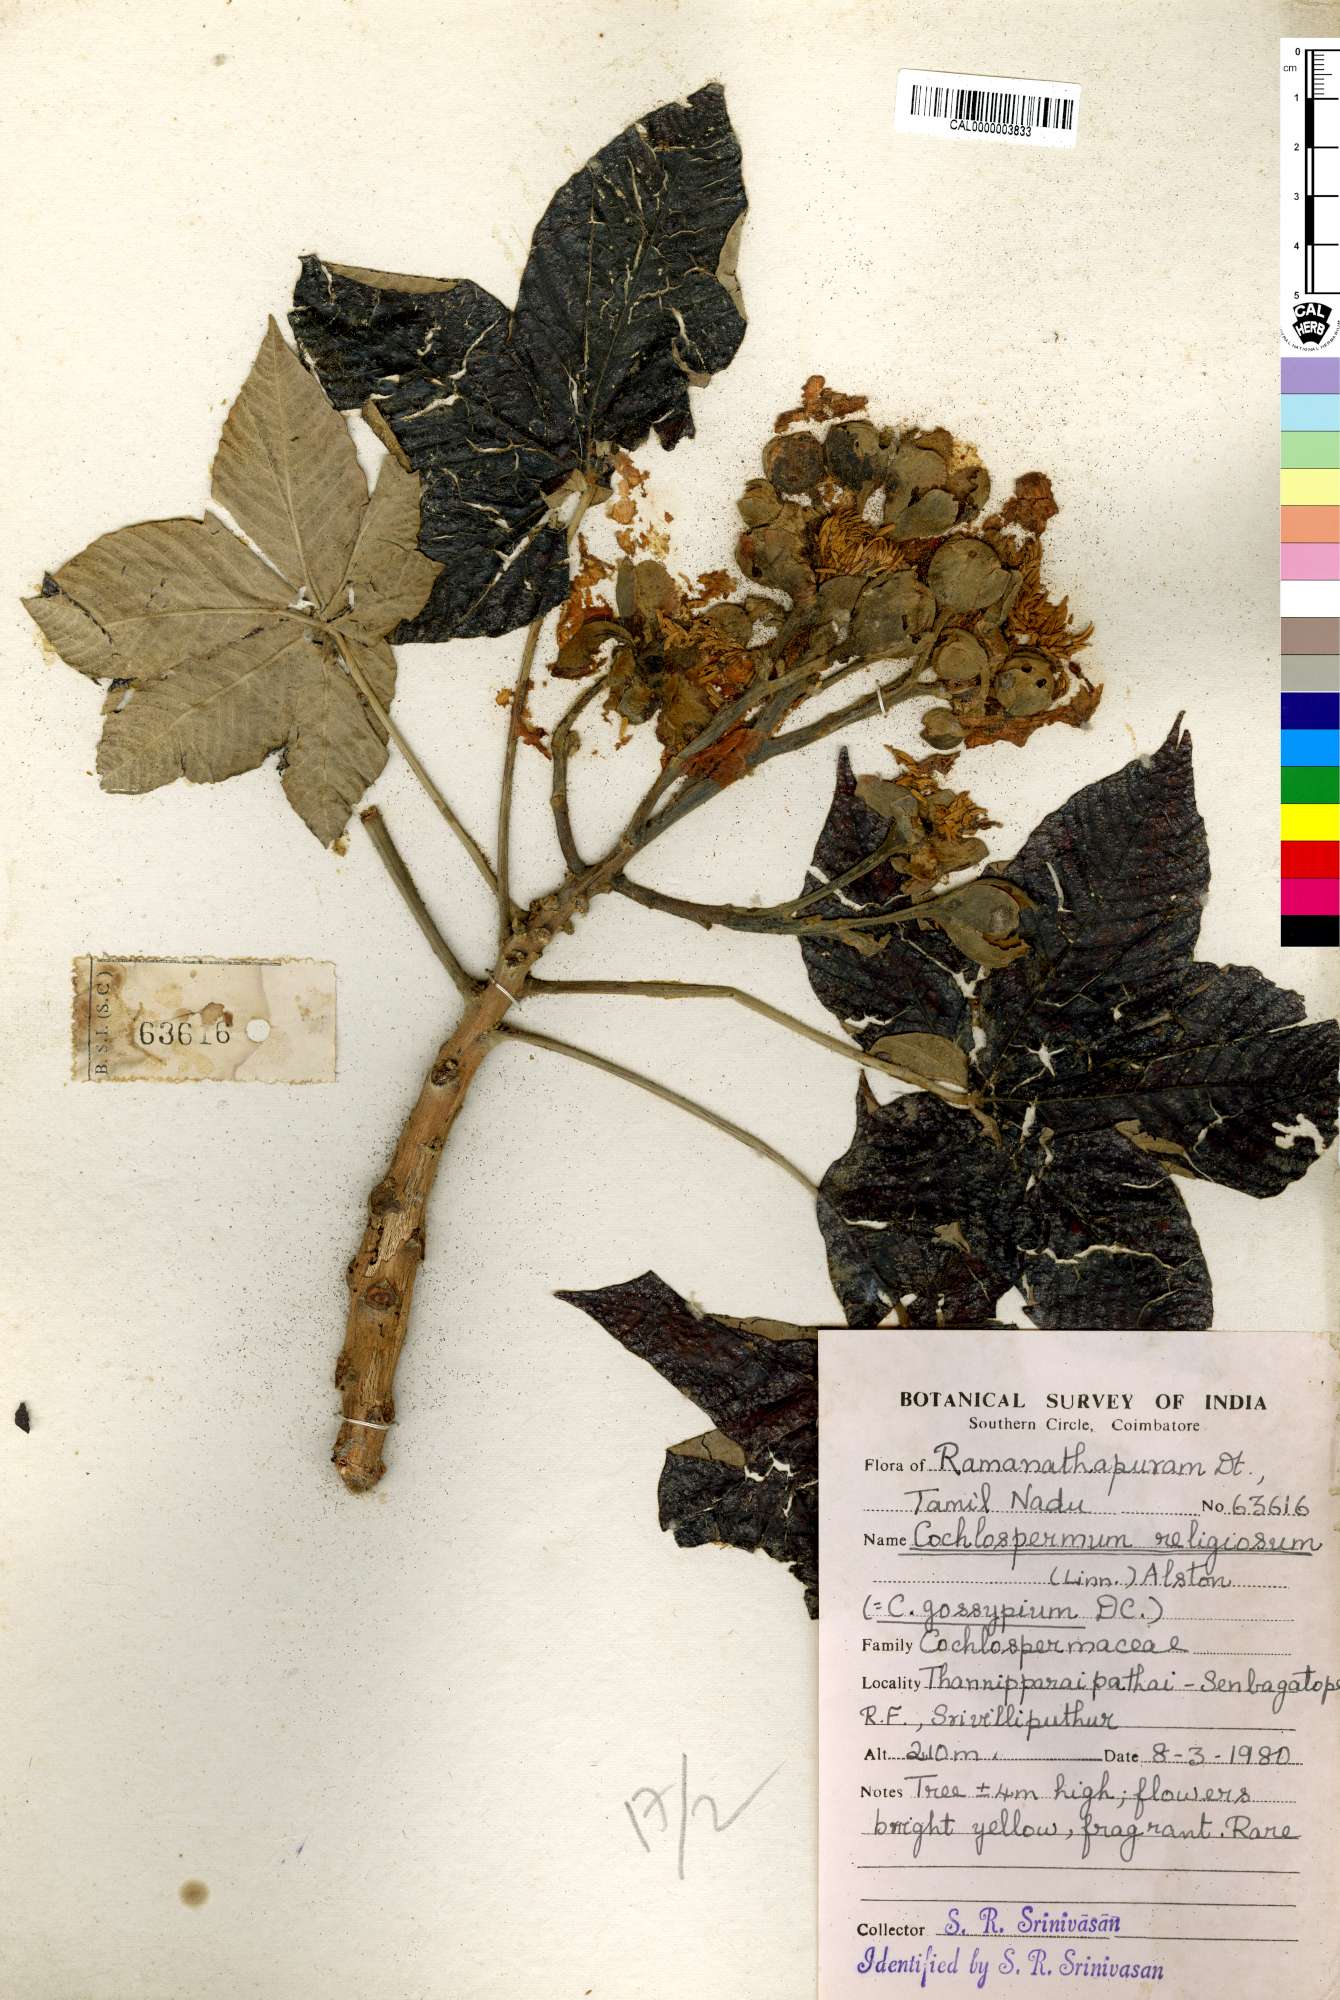 CAL0000003833
0
cm
1
2
3
4
5
CAL
HERB
B. S. I. (S. C.)
63616
BOTANICAL SURVEY OF INDIA
Southern Circle, Coimbatore
Flora of Ramanathapuram Dt.,
Tamil Nadu No 63616
Name Cochlospermum religiosum
(Linn.) Alston
(= C. gossypium DC.)
Family Cochlospermaceae
Locality Thannipparai pathai - Senbagatope
R.F., Srivilliputhur
Alt. 210m. Date 8-3-1980
Notes Tree ± 4m high; flowers
bright yellow, fragrant. Rare
Collector S. R. Srinivāsān
Identified by S. R. Srinivasan